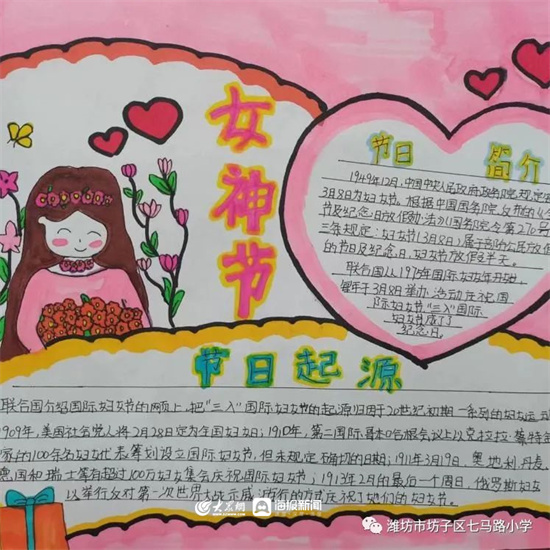 女神节
节日 简介
1949年12月,中国中央人民政府政务院规定每
3月8日为妇女节。根据中国国务院
节及纪念日放假办法》(国务院令第270号
三年规定:妇女节(3月8日)属于部分公民放假
的节日及纪念日,妇女节放假半天。
联合国从1975年国际妇女年开始,
每年于3月8日举办活动庆祝国
际妇女节"三八"国际
妇女节成了
纪念日。
节日起源
联合国介绍国际妇女节的网页上,把"三八"国际妇女节的起源归因于20世纪初期一系列的妇女运动
1909年,美国社会党人将2月28日定为全国妇女日;1910年,第二国际哥本哈根会议上以克拉拉·蔡特金
家的100名妇女代表筹划设立国际妇女节,但未规定确切的日期;1911年3月19日,奥地利、丹麦、
德国和瑞士等有超过100万妇女集会庆祝国际妇女节;1913年2月的最后一个周日,俄罗斯妇女
以举行反对第一次世界大战示威游行的方式庆祝了她们的妇女节。
大众网 海报新闻
潍坊市坊子区七马路小学